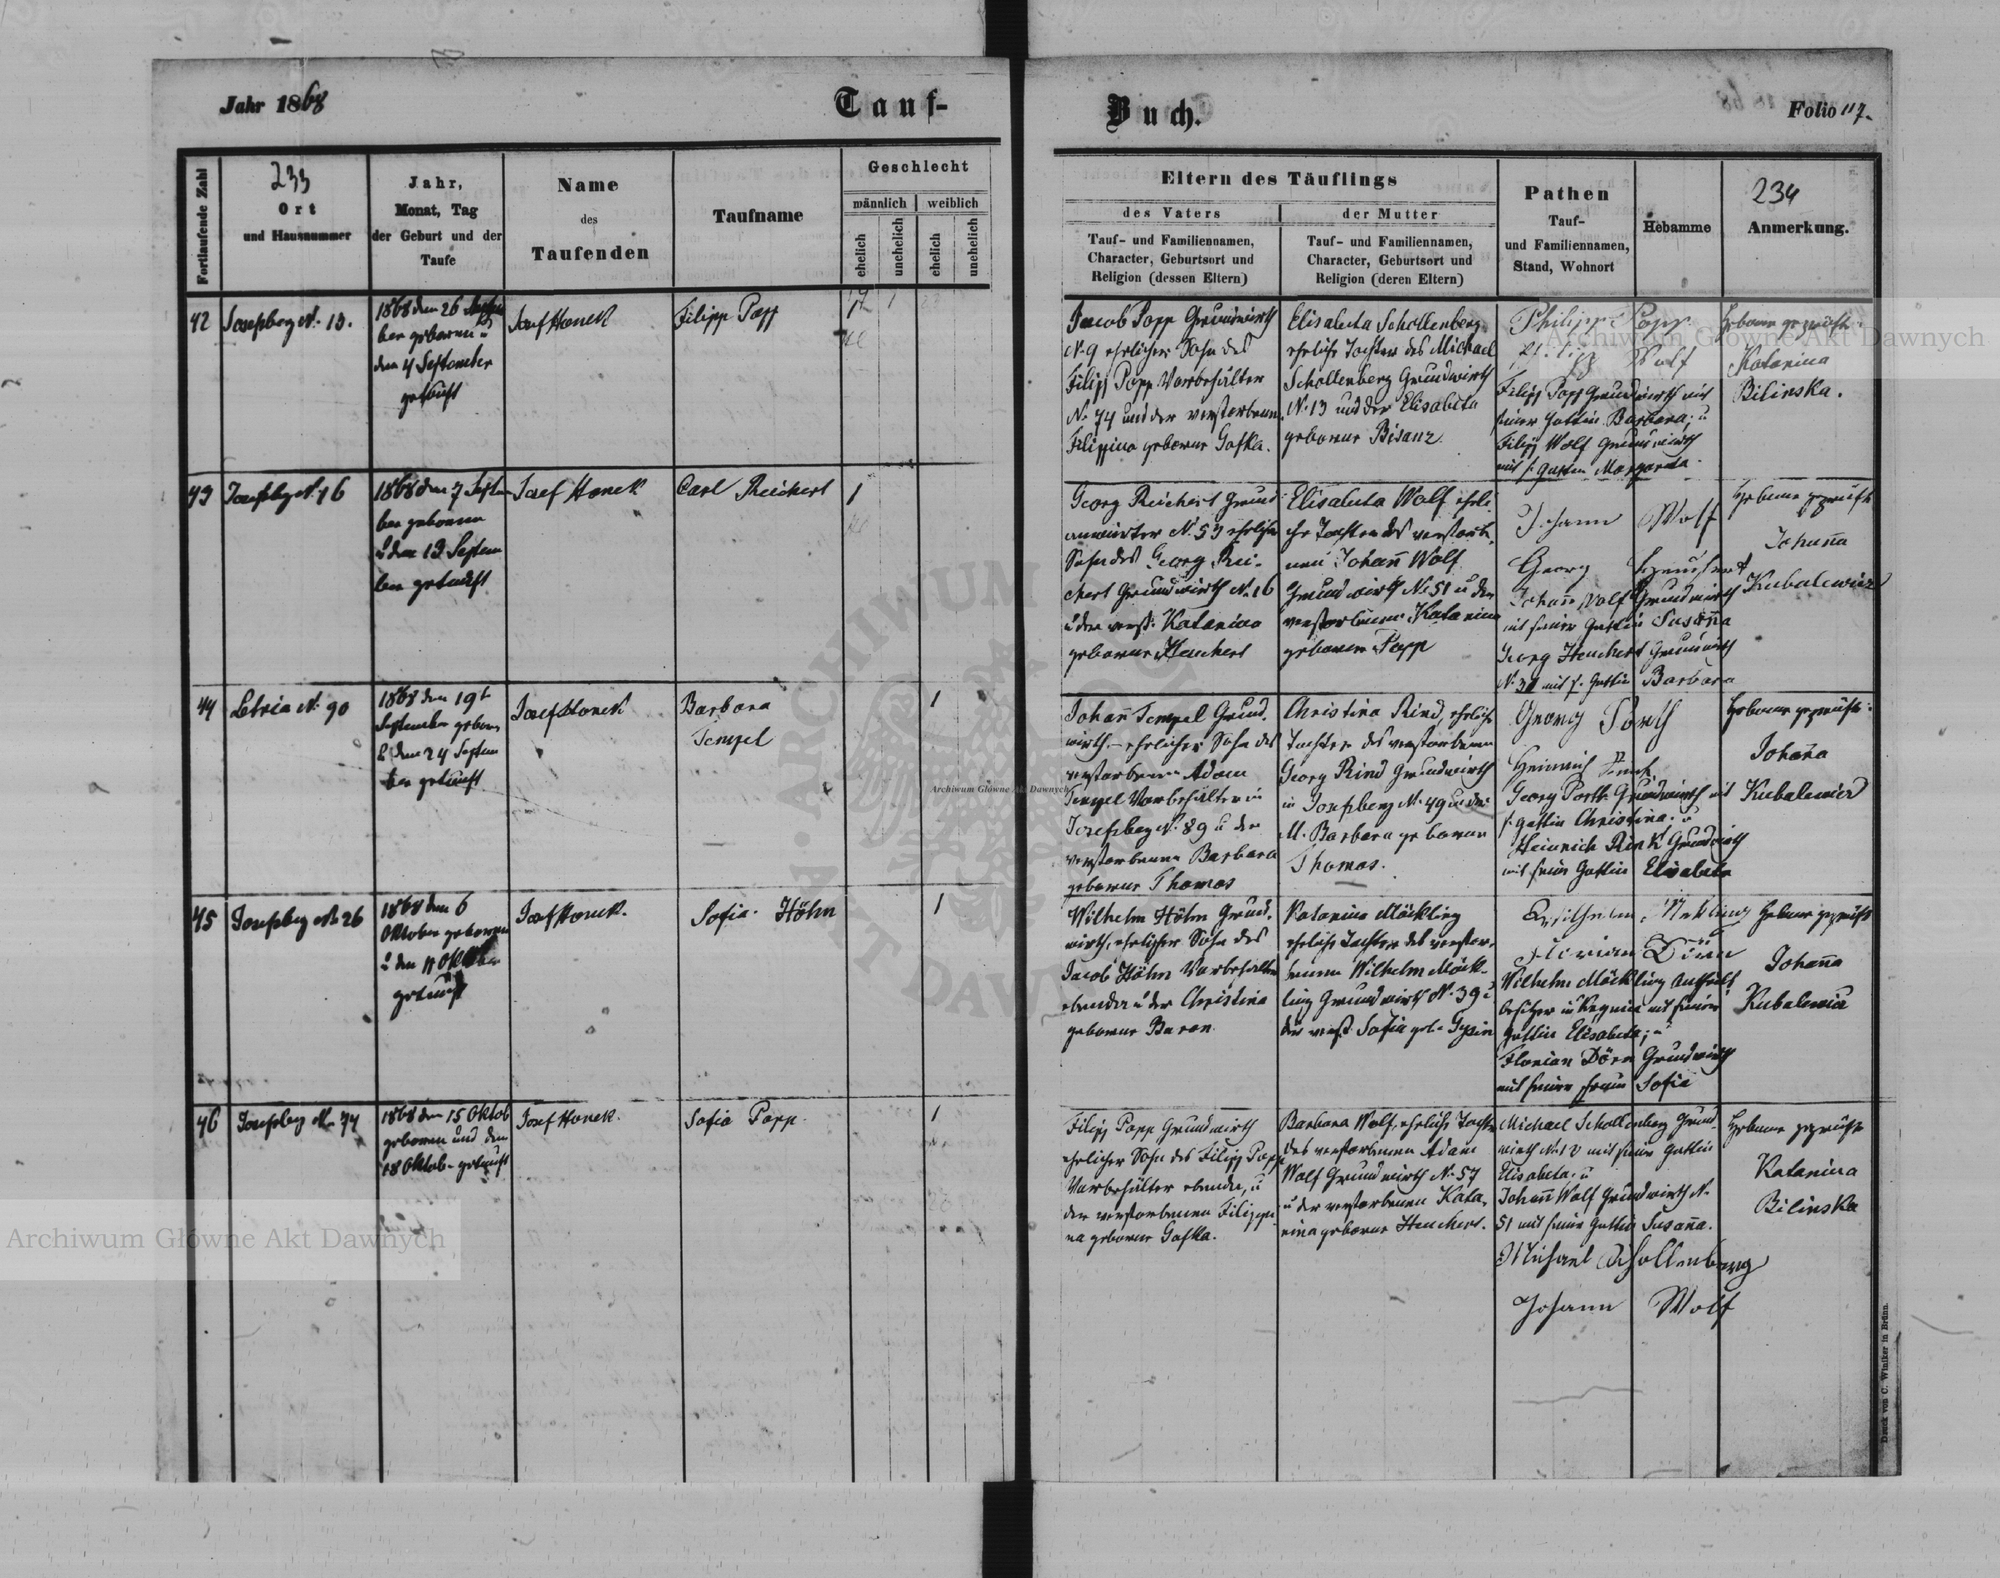 Jahr 1868
Tauf-
Buch.
Folio 117.
Fortlaufende Zahl
233
Ort
und Hausnummer
Jahr,
Monat, Tag
der Geburt und der
Taufe
Name
des
Taufenden
Taufname
Geschlecht
männlich
weiblich
ehelich
unehelich
ehelich
unehelich
Eltern des Täuflings
des Vaters
der Mutter
Tauf- und Familiennamen,
Character, Geburtsort und
Religion (dessen Eltern)
Tauf- und Familiennamen,
Character, Geburtsort und
Religion (deren Eltern)
Pathen
Tauf-
und Familiennamen,
Stand, Wohnort
Hebamme
234
Anmerkung.
42
Josefsberg N. 13.
1868 den 26
ber geboren u
den 4 September
getauft
Josef Honek
Filipp Popp
Jacob Popp Grundwirth
N. 9 ehelicher Sohn des
Filipp Popp Vorbehälter
N. 74 und der verstorbenen
Filippina geborene Gafka.
Elisabeta Schollenberg
eheliche Tochter des Michael
Schollenberg Grundwirth
N. 13 und der Elisabeta
geborene Bisanz
Philipp Popp
Wolf
Filipp Popp Grundwirth mit
seiner Gattin Barbara; u
Filipp Wolf Grundwirth
mit s. Gattin Margareta.
Hebame geprüft
Katarina
Bilinska.
43
Josefsberg N. 16
1868 den 7 Septem
ber geboren
u den 13 Septem
ber getauft
Josef Honek
Carl Reichert
1
Georg Reichert Grund
N. 53 ehelicher
Sohn des Georg Rei-
chert Grundwirth N. 16
u der verst. Katarina
geborene Heuchert
Elisabeta Wolf eheli
che Tochter des verstorbe
nen Johann Wolf
Grundwirth N. 51 u der
verstorbenen Katarina
geborene Popp
Johann Wolf
Georg Heuchert
Johann Wolf Grundwirth
mit seiner Gattin Susanna
Georg Heuchert Grundwirth
mit s. Gattin Barbara
Hebame geprüft
Johanna
Kubalewicz
44
Letnia N. 90
1868 den 19t
September geboren
u den 24 Septem
ber getauft
Josef Honek
Barbara
Tempel
1
Johann Tempel Grund-
wirth ehelicher Sohn des
verstorbenen Adam
Tempel Vorbehälter in
Josefsberg N. 89 u der
verstorbenen Barbara
geborene Thomas
Christina Rind, eheliche
Tochter des verstorbenen
Georg Rind Grundwirth
in Josefsberg N. 49 u der
M. Barbara geborene
Thomas.
Georg Porth
Heinrich
Georg Porth Grundwirth mit
s. Gattin Christina; u
Heinrich Rink Grundwirth
mit seine Gattin Elisabeta
Hebame geprüft
Johanna
Kubalewicz
45
Josefsberg N. 26
1868 den 6
Oktober geboren
u den 11 Oktober
getauft
Josef Honek.
Sofia Höhn
1
Wilhelm Höhn Grund-
wirth, ehelicher Sohn des
Jacob Höhn Vorbehälter
ebenda u der Christina
geborene Baron
Katarina Möckling
eheliche Tochter des verstor-
benen Wilhelm Möck-
ling Grundwirth N. 39 u
der verst. Sofia geb.
Wilhelm
Florian Dörn
Wilhelm Möckling
besitzer in mit seiner
Gattin Elisabeta; u
Florian Dörn Grundwirth
mit seiner Frau Sofia
Hebame geprüft
Johanna
Kubalewicz
46
Josefsberg N. 74
1868 den 15 Oktob
geboren und den
18 Oktob. getauft
Josef Honek.
Sofia Popp
1
Filipp Popp Grundwirth
ehelicher Sohn des Filipp Popp
Vorbehälter ebenda, u
der verstorbenen Filippi-
na geborene Gafka.
Barbara Wolf, eheliche Tochter
des verstorbenen Adam
Wolf Grundwirth N. 57
u der verstorbenen Kata-
rina geborene Heuchert.
Michael Schollenberg Grund-
wirth N. 13 mit seine Gattin
Elisabeta; u
Johann Wolf Grundwirth N.
51 mit seine Gattin Susanna.
Michael Schollenberg
Johann Wolf
Hebame geprüft
Katarina
Bilinska
Archiwum Główne Akt Dawnych
Archiwum Główne Akt Dawnych
Archiwum Główne Akt Dawnych
Druck von C. Winiker in Brünn.